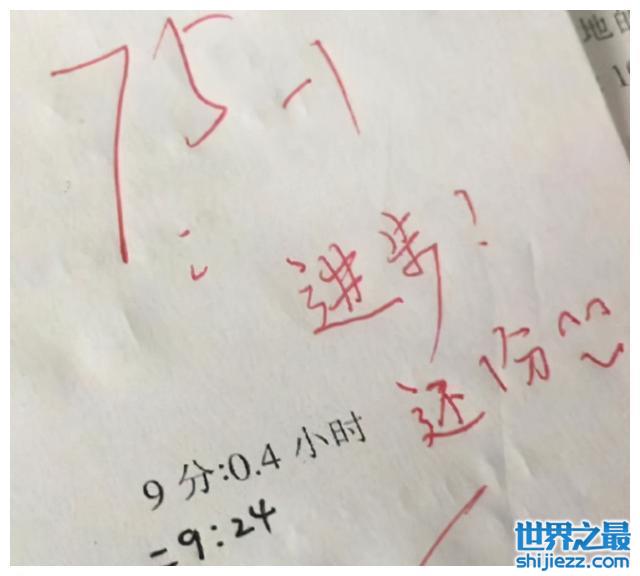 75 -1
地
进步！
还1分
9 分:0.4 小时
=9:24
世界之最
shijiezz.com